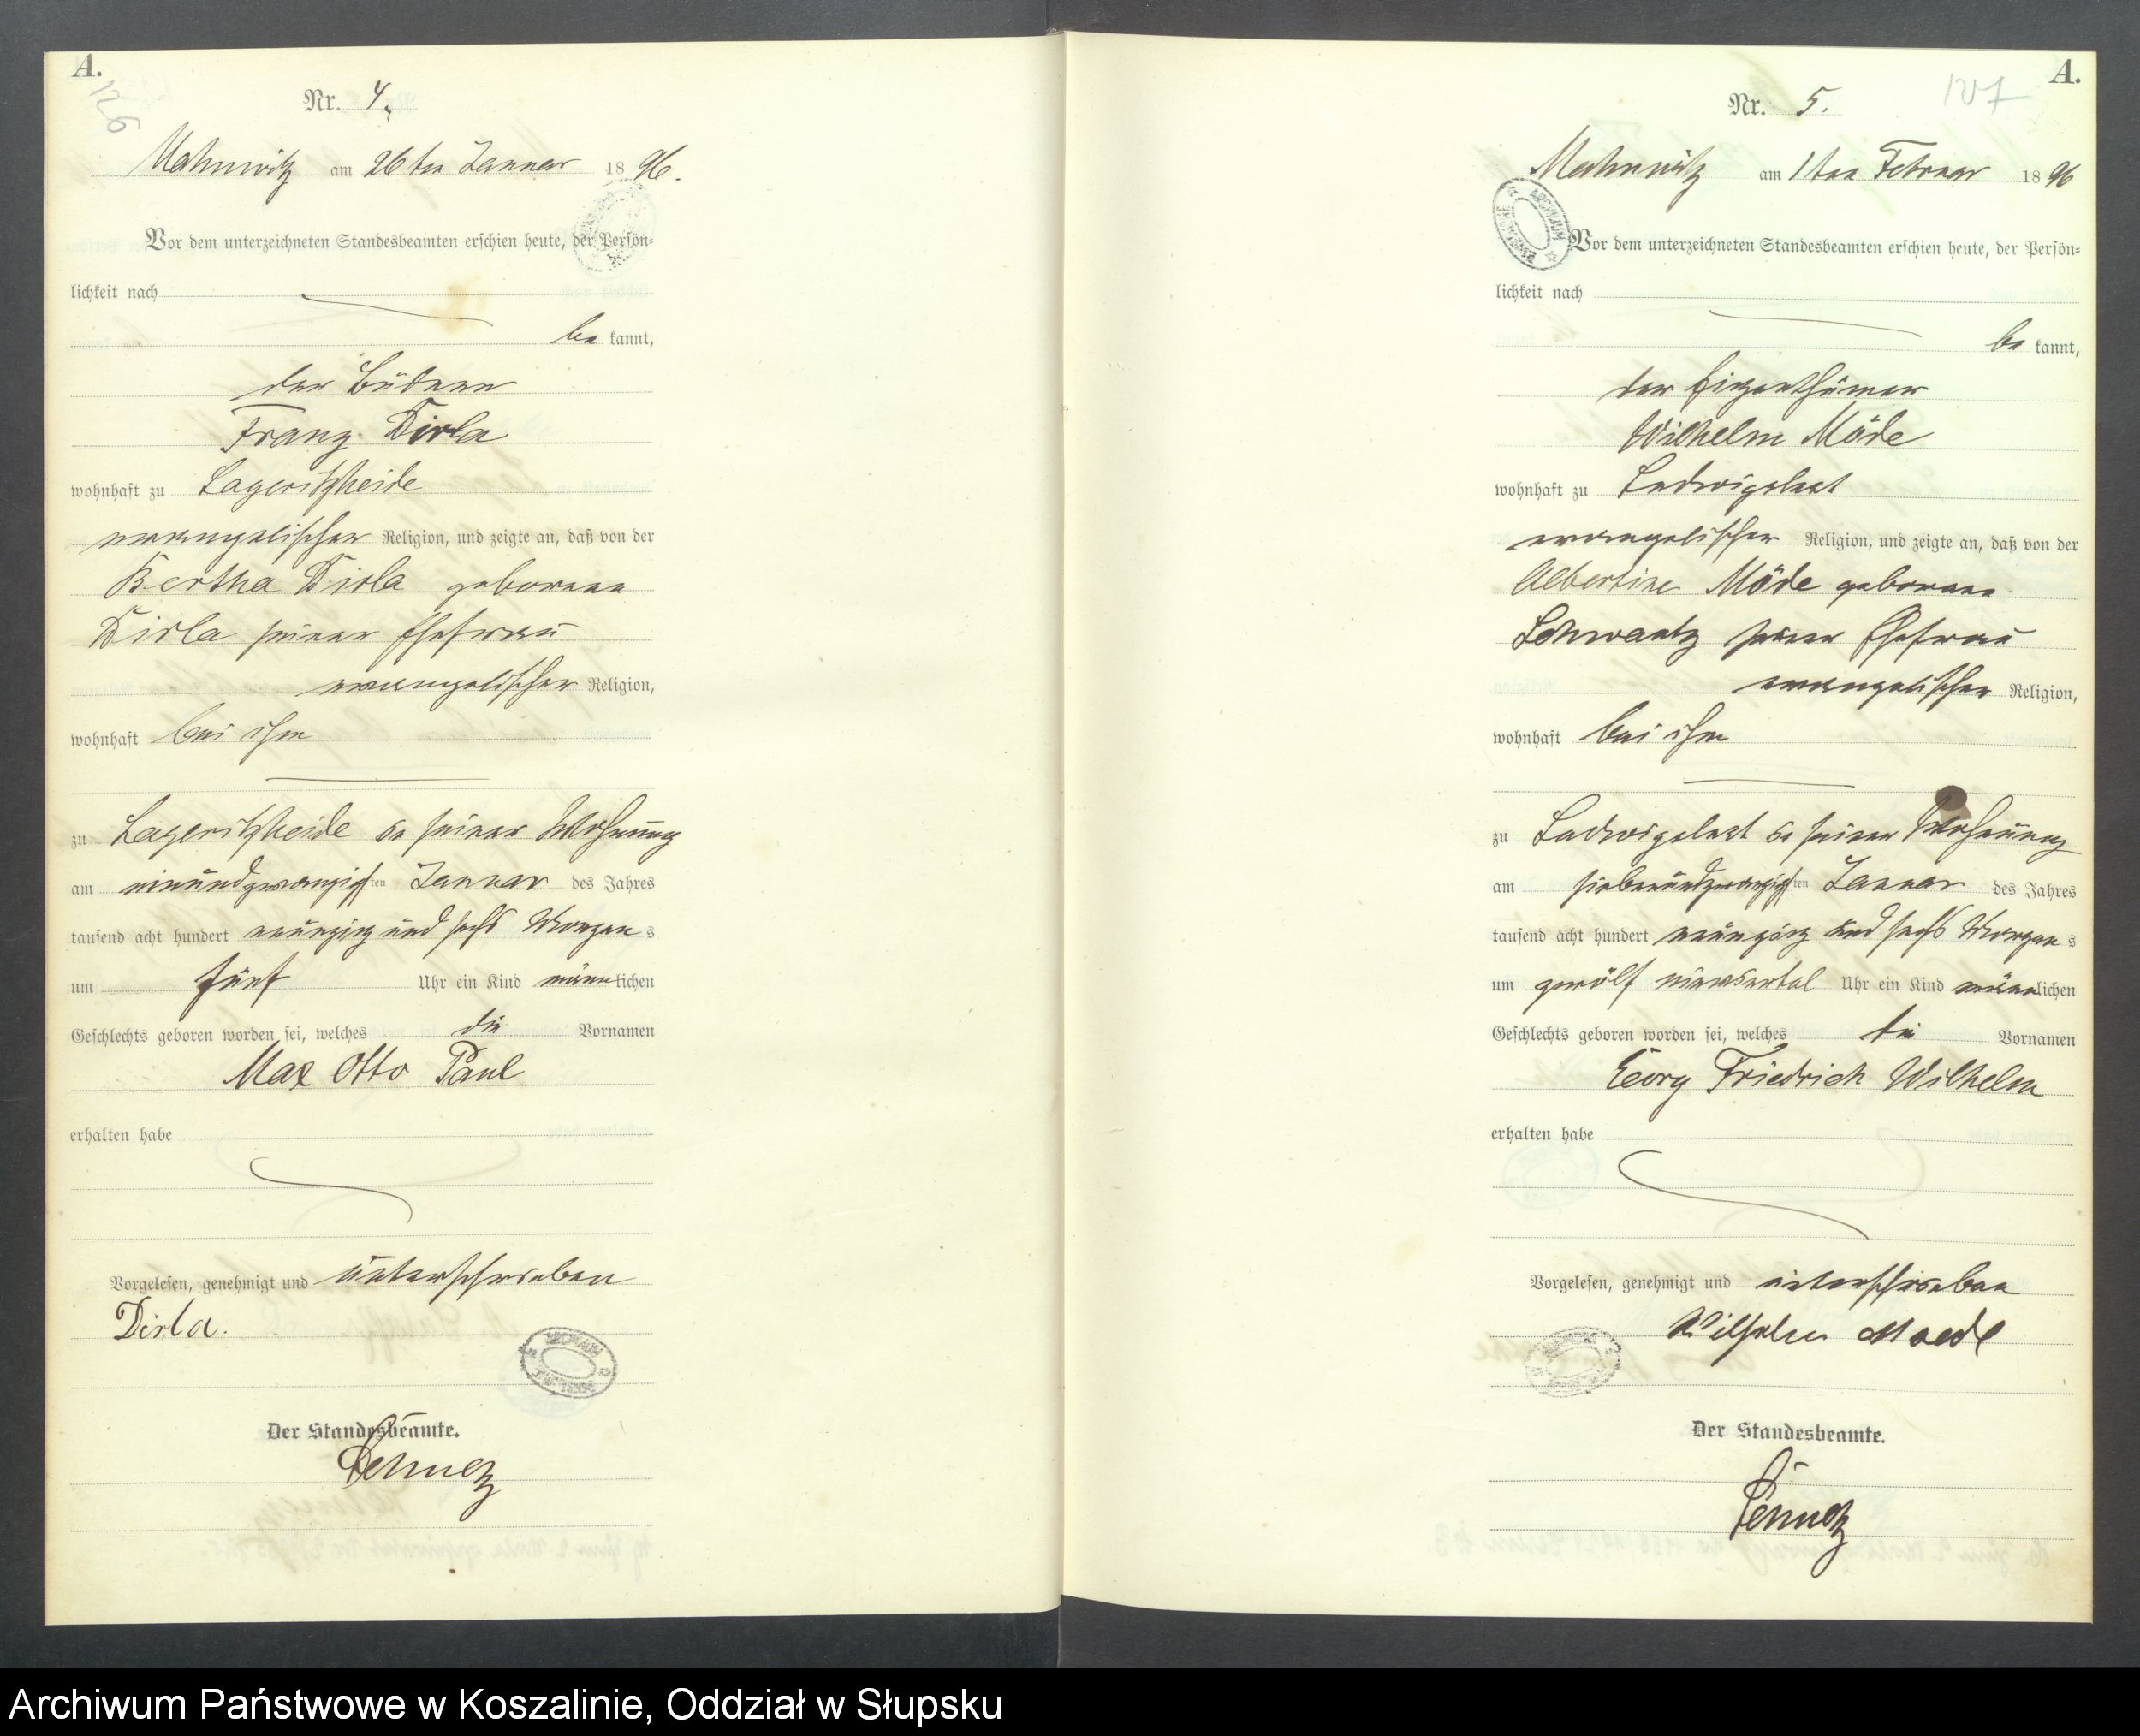 A.
126
Nr. 4.
am 26ten Januar 1896.
Vor dem unterzeichneten Standesbeamten erschien heute, der Persön-
lichkeit nach
be kannt,
der Büdner
Franz Dirla
wohnhaft zu Lageritzheide
evangelischer Religion, und zeigte an, daß von der
Bertha Dirla geborene
Dirla seiner Ehefrau
evangelischer Religion,
wohnhaft bei ihm
zu Lageritzheide in seiner Wohnung
am einundzwanzigsten Januar des Jahres
tausend acht hundert neunzig und sechs Morgens
um fünf Uhr ein Kind männlichen
Geschlechts geboren worden sei, welches die Vornamen
Max Otto Paul
erhalten habe
Vorgelesen, genehmigt und unterschrieben
Dirla.
Der Standesbeamte.
A.
127
Nr. 5.
am 1ten Februar 1896
Vor dem unterzeichneten Standesbeamten erschien heute, der Persön-
lichkeit nach
be kannt,
der Eigenthümer
Wilhelm Möde
wohnhaft zu Ludwigslust
evangelischer Religion, und zeigte an, daß von der
Albertine Möde geborene
Schwantz seiner Ehefrau
evangelischer Religion,
wohnhaft bei ihm
zu Ludwigslust in seiner Wohnung
am siebenundzwanzigsten Januar des Jahres
tausend acht hundert neunzig und sechs Morgens
um zwölf einviertel Uhr ein Kind männlichen
Geschlechts geboren worden sei, welches die Vornamen
Georg Friedrich Wilhelm
erhalten habe
Vorgelesen, genehmigt und unterschrieben
Wilhelm Moede
Der Standesbeamte.
Archiwum Państwowe w Koszalinie, Oddział w Słupsku